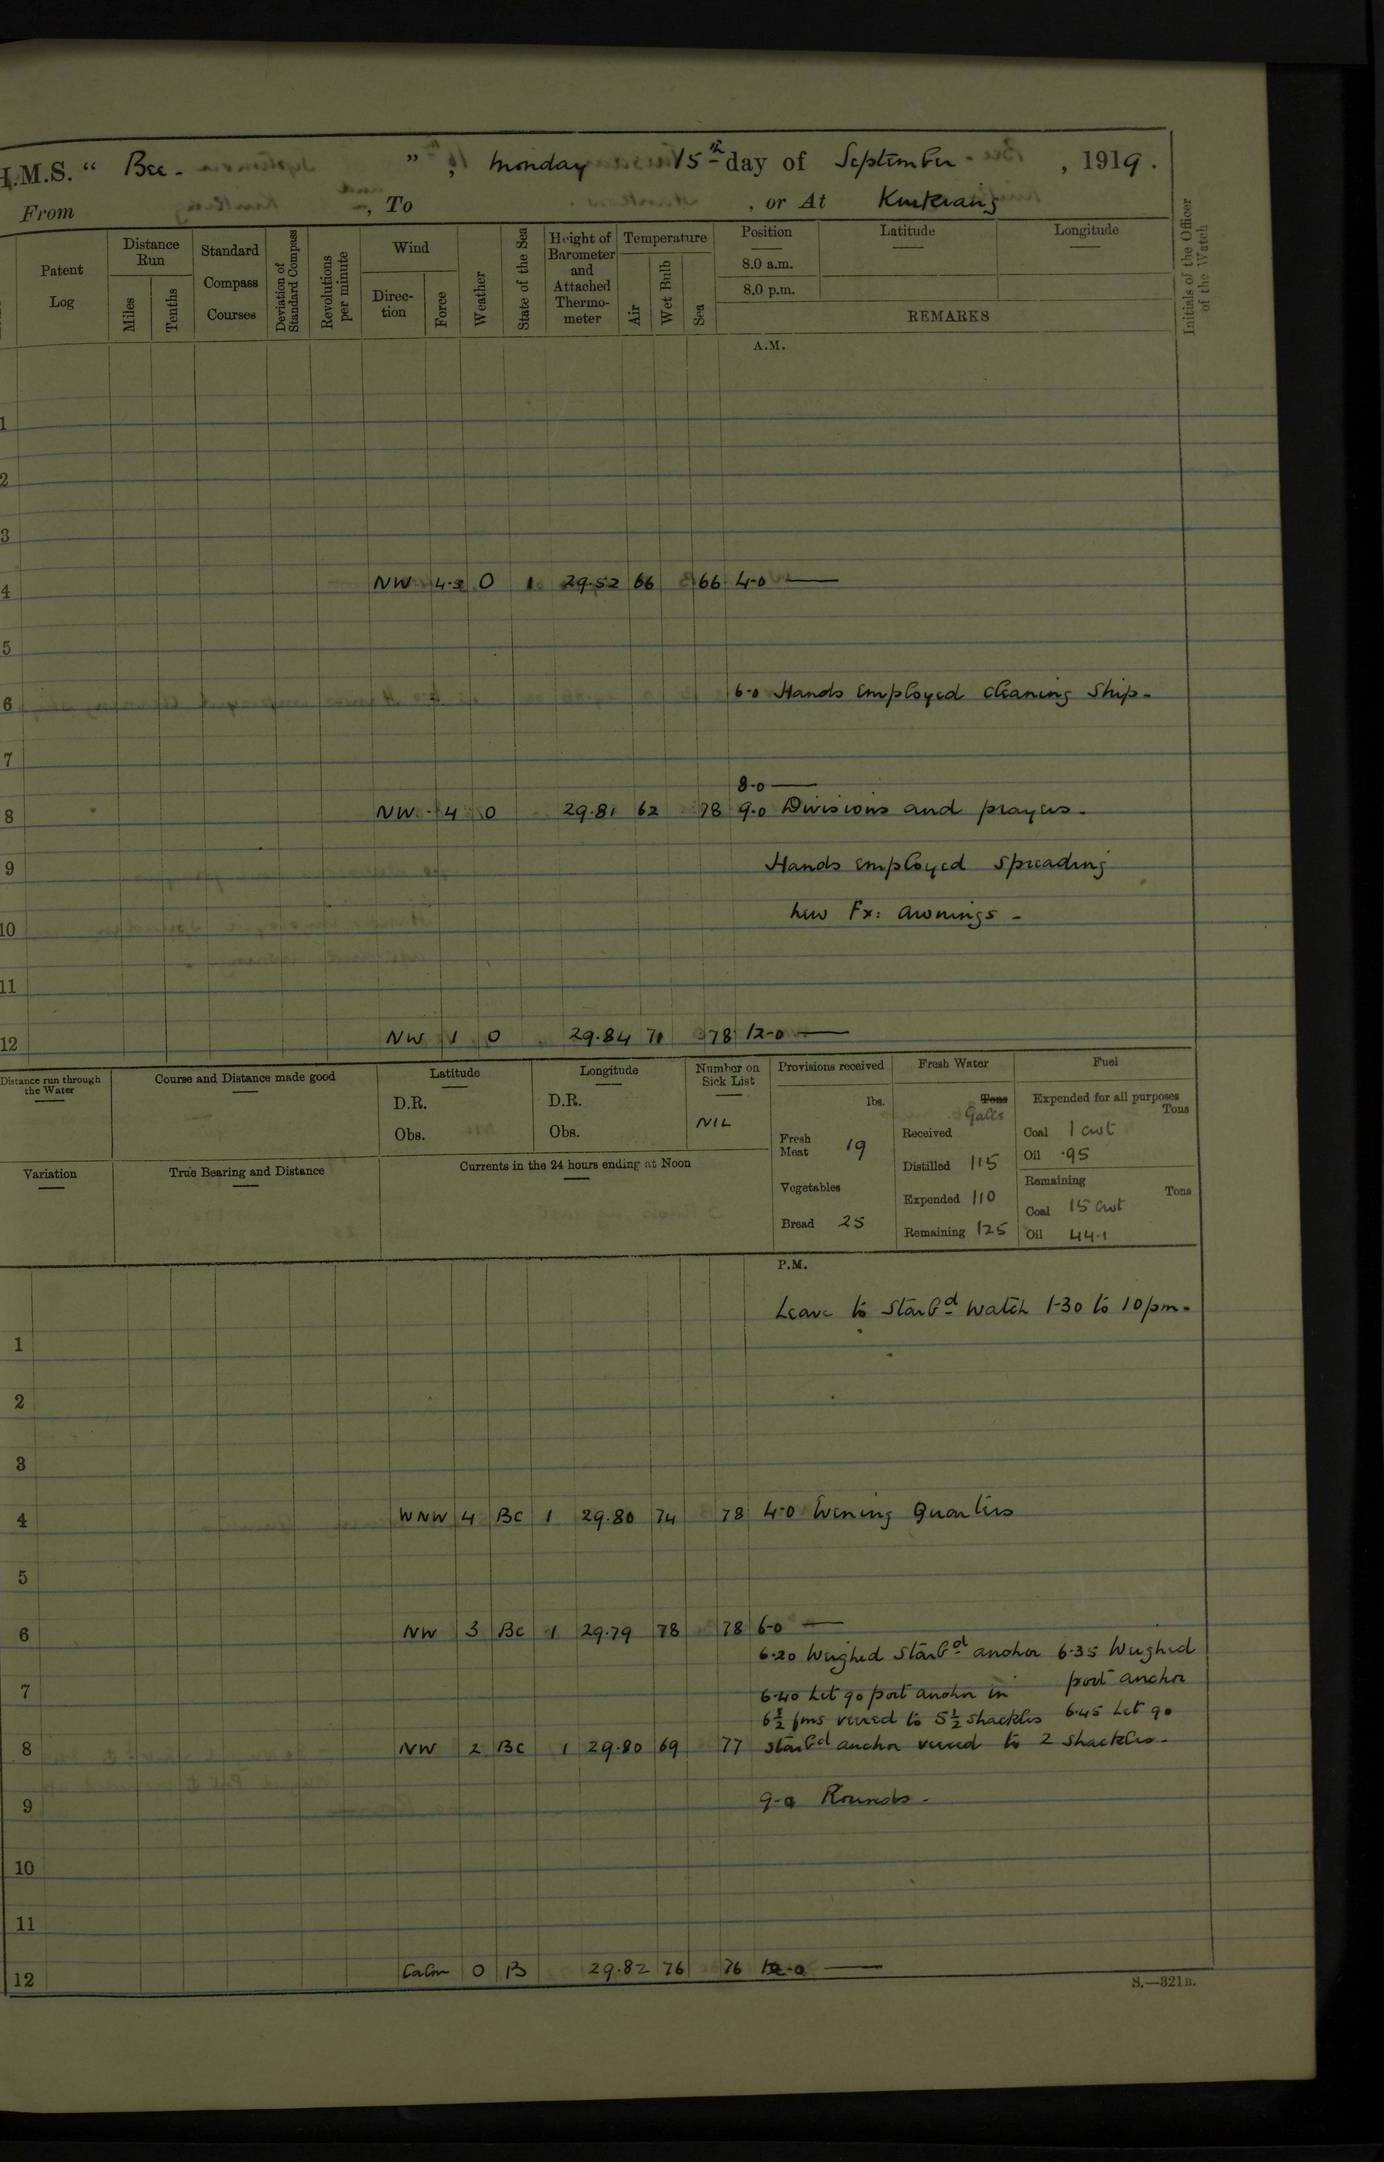 H.M.S. “ Bee. ”, Monday 15th day of September, 1919.
From , To , or At Kiukiang
Patent Log
Distance Run
Miles
Tenths
Standard Compass Courses
Deviation of Standard Compass
Revolutions per minute
Wind
Direction
Force
Weather
State of the Sea
Height of Barometer and Attached Thermometer
Temperature
Air
Wet Bulb
Sea
Position
8.0 a.m.
8.0 p.m.
Latitude
Longitude
REMARKS
Initials of the Officer of the Watch
A.M.
1
2
3
4 NW 4-3 O 1 29.52 66 66 4-0 —
5
6 6-0 Hands employed cleaning ship.
7
8-0 —
8 NW 4 O 29.81 62 78 9-0 Divisions and prayers.
9 Hands employed spreading
10 new Fx: awnings -
11
12 NW 1 O 29.84 71 78 12-0 —
Distance run through the Water
Course and Distance made good
Latitude
D.R.
Obs.
Longitude
D.R.
Obs.
Number on Sick List
NIL
Variation
True Bearing and Distance
Currents in the 24 hours ending at Noon
Provisions received
lbs.
Fresh Meat 19
Vegetables
Bread 25
Fresh Water
Tons
Galls
Received
Distilled 115
Expended 110
Remaining 125
Fuel
Expended for all purposes
Tons
Coal 1 cwt
Oil .95
Remaining
Tons
Coal 15 cwt
Oil 44.1
P.M.
Leave to Starbd Watch 1-30 to 10 pm.
1
2
3
4 WNW 4 BC 1 29.80 74 78 4-0 Evening Quarters
5
6 NW 3 BC 1 29.79 78 78 6-0 —
6.20 Weighed Starbd anchor 6.35 Weighed port anchor
7 6.40 Let go port anchor in
6½ fms veered to 5½ shackles 6.45 Let go
8 NW 2 BC 1 29.80 69 77 starbd anchor veered to 2 shackles.
9 9-0 Rounds.
10
11
12 Calm 0 B 29.82 76 76 12-0 —
S.—321B.